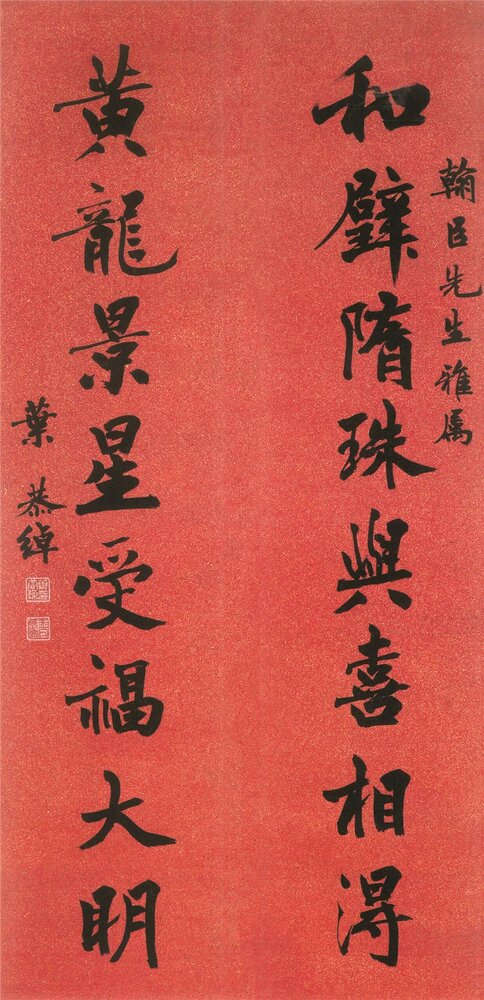 翰臣先生雅属
和璧隋珠與喜相得
黃龍景星受福大明
葉恭綽